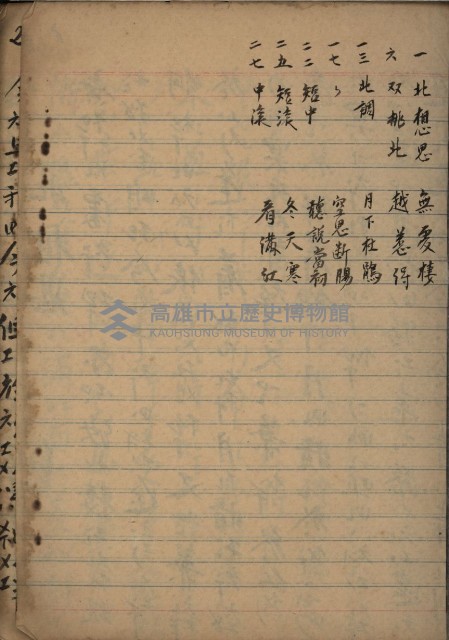 一 北想思 無憂樓
六 双桃北 越惹得
一三 北調 月下杜鵑
一七 〃 空思断腸
二二 短中 聽說當初
二五 短滾 冬天寒
二七 中滾 看滿紅
高雄市立歷史博物館
KAOHSIUNG MUSEUM OF HISTORY